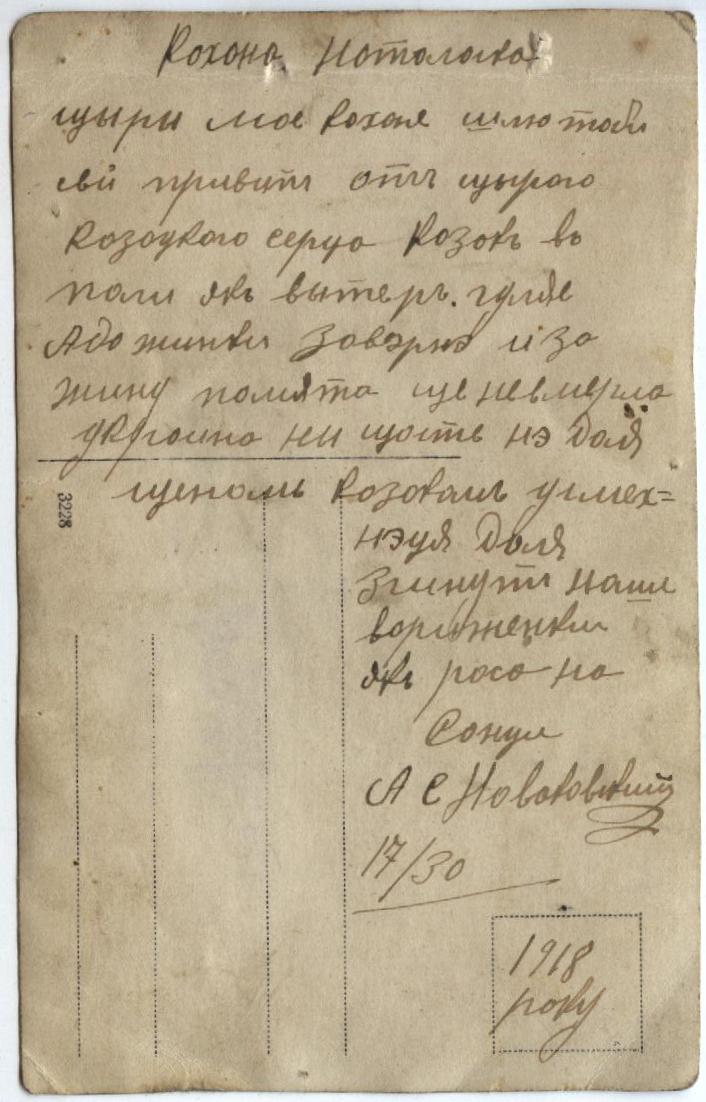 Кохана Наталочка
щыри мое кохая шлю тоби
свй привит отъ щырого
козоцкого серца Козокъ въ
поли якъ вытеръ. гуляе
Адо жинки завэрнэ и за
жину помята ще не вмерла
украина ни щасте нэ доля
ще номъ козокамъ усмех=
нэця доля
Згинут наши
вориженки
якъ роса на
Сонци
А С Новаковский
17/30
1918
року
3228